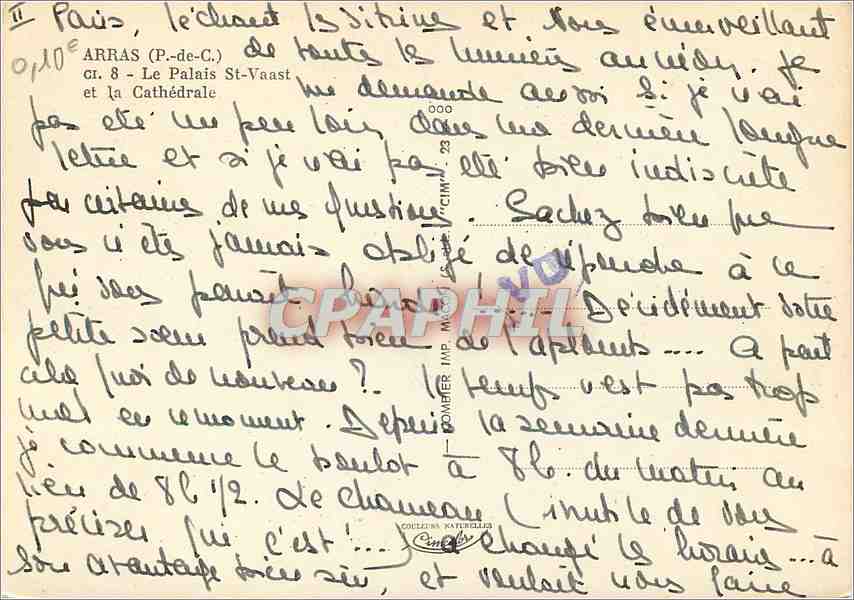 II Paris, léchant les vitrines et nous émerveillant
0,10€ ARRAS (P.-de-C.) de toutes les lumières au néon. Je
CI. 8 - Le Palais St-Vaast
et la Cathédrale
me demande aussi si je n'ai
pas été un peu loin dans ma dernière longue
lettre et si je n'ai pas été bien indiscrète
par certaines de mes questions. Sachez bien que
vous n'êtes jamais obligé de répondre à ce
qui vous paraît ! VD Décidément votre
CPAPHIL
petite soeur prend bien de l'aplomb .... A part
cela quoi de nouveau ? le temps n'est pas trop
mal en ce moment. Depuis la semaine dernière
je commence le boulot à 8h. du matin au
lieu de 8h 1/2. Le chameau (inutile de vous
préciser qui c'est !...) a changé les horaires ... à
son avantage bien sûr, et voulait nous faire
COMBIER IMP. MACON "CIM" 23
COULEURS NATURELLES
Cimcolor